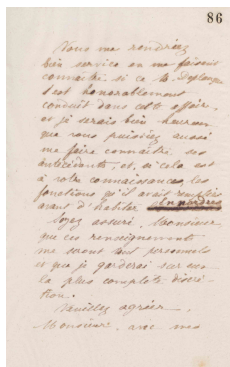 86
Vous me rendriez
bien service en me faisant
connaître si ce M. Deplanque
s'est honorablement
conduit dans cette affaire,
et je serais bien heureux
que vous puissiez aussi
me faire connaître ses
antécédents, et, si cela est
à votre connaissance, les
fonctions qu'il avait remplies
avant d'habiter
Soyez assuré, Monsieur
que ces renseignements
me seront tout personnels
et que je garderai sur eux
la plus complète discré-
tion.
Veuillez agréer,
Monsieur, avec mes